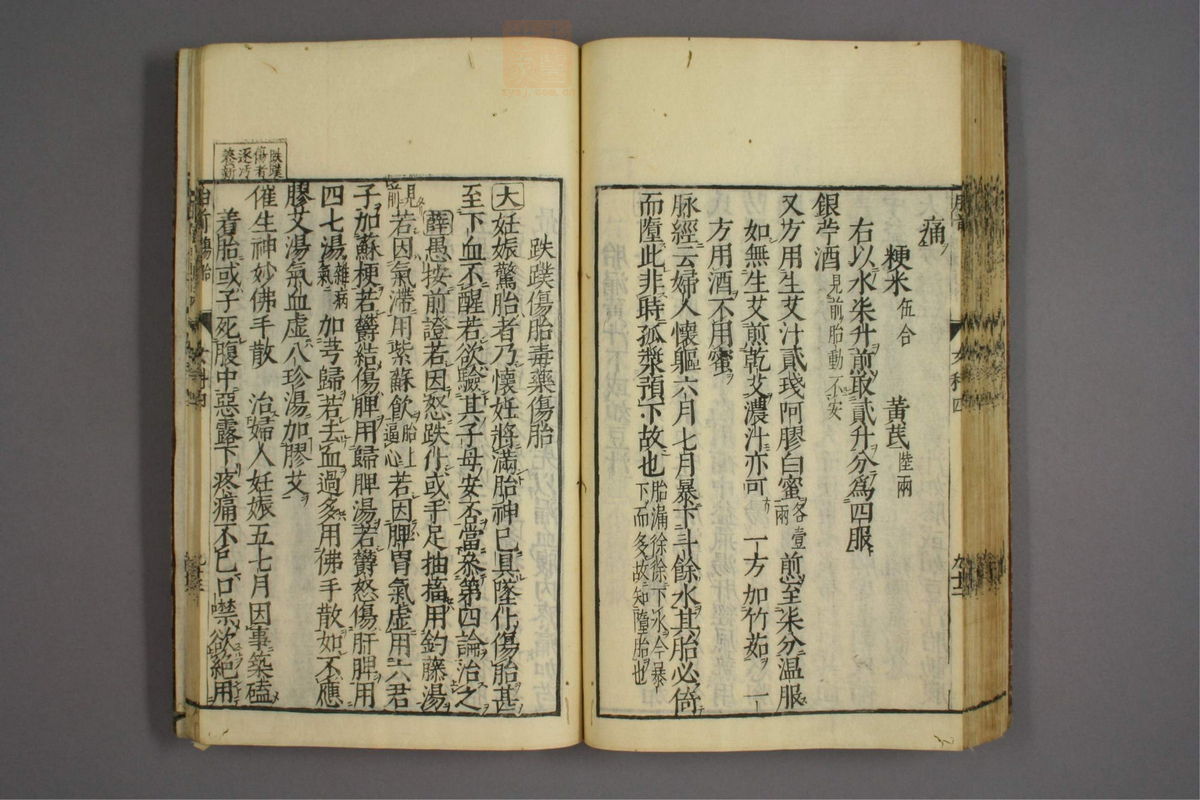 痛
粳米 伍合 黃芪 陸兩
右以水柒升煎取貳升分為四服
銀苧酒 見前胎動不安
又方用生艾汁貳琖阿膠白蜜 各壹兩 煎至柒分温服
如無生艾煎乾艾濃汁亦可 一方加竹茹 一
方用酒不用蜜
脉經云婦人懷軀六月七月暴下斗餘水其胎必倚
而墮此非時孤漿預下故也 胎漏徐徐下水今暴下而多故知墮胎也
跌蹼傷胎毒藥傷胎
大 妊娠驚胎者乃懷妊將滿胎神已具墜仆傷胎甚
至下血不醒若欲驗其子母安否當叅第四論治之
薛 愚按前證若因怒跌仆或手足抽搐用鈎藤湯
見前 若因氣滯用紫蘇飲 胎上逼心 若因脾胃氣虛用六君
子加蘇梗若鬱結傷脾用歸脾湯若鬱怒傷肝脾用
四七湯 雜病氣 加芎歸若去血過多用佛手散如不應
膠艾湯氣血虛八珍湯加膠艾
催生神妙佛手散 治婦人妊娠五七月因事築磕
着胎或子死腹中惡露下疼痛不已口噤欲絕用
跌蹼
傷者
逐汚
女科四